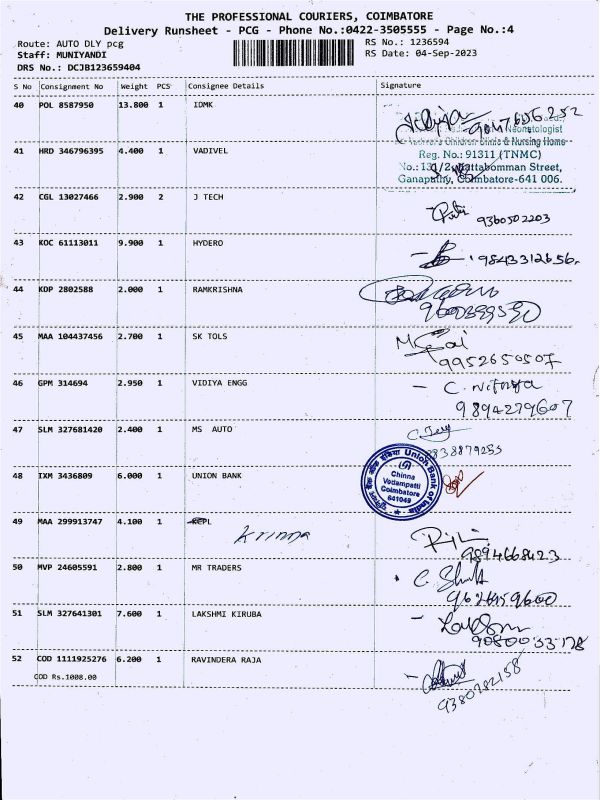 THE PROFESSIONAL COURIERS, COIMBATORE
Delivery Runsheet - PCG - Phone No.:0422-3505555 - Page No.:4
Route: AUTO DLY pcg
RS No.: 1236594
Staff: MUNIYANDI
RS Date: 04-Sep-2023
DRS No.: DCJB123659404
S No Consignment No Weight PCS Consignee Details Signature
40 POL 8587950 13.800 1 IDMK
9047656252
Neonatologist
Children Clinic & Nursing Home
41 HRD 346796395 4.400 1 VADIVEL
Reg. No.: 91311 (TNMC)
No.: 131/2, Kattabomman Street,
Ganapathy, Coimbatore-641 006.
42 CGL 13027466 2.900 2 J TECH
9360502203
43 KOC 61113011 9.900 1 HYDERO
9843312656
44 KDP 2802588 2.000 1 RAMKRISHNA
45 MAA 104437456 2.700 1 SK TOLS
9952650507
46 GPM 314694 2.950 1 VIDIYA ENGG
C. Nithya
9894279607
47 SLM 327681420 2.400 1 MS AUTO
48 IXM 3436809 6.000 1 UNION BANK
Union Bank of India
Chinna
Vedampatti
Coimbatore
641049
49 MAA 299913747 4.100 1 KCPL
Krinna
9894668423
50 MVP 24605591 2.800 1 MR TRADERS
51 SLM 327641301 7.600 1 LAKSHMI KIRUBA
9080033178
52 COD 1111925276 6.200 1 RAVINDERA RAJA
COD Rs.1008.00
9380782158